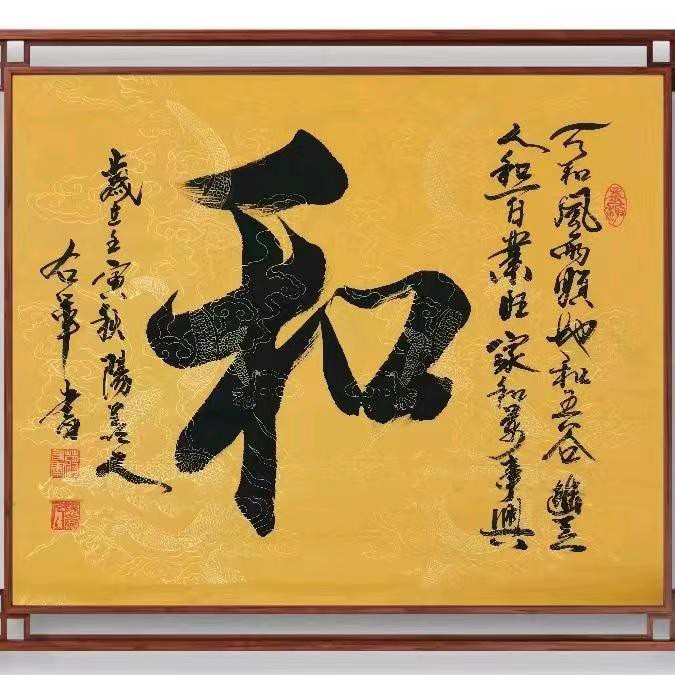 天和風雨順地和五谷豐登
人和百業旺家和萬事興
和
歲在壬寅秋陽
右華書